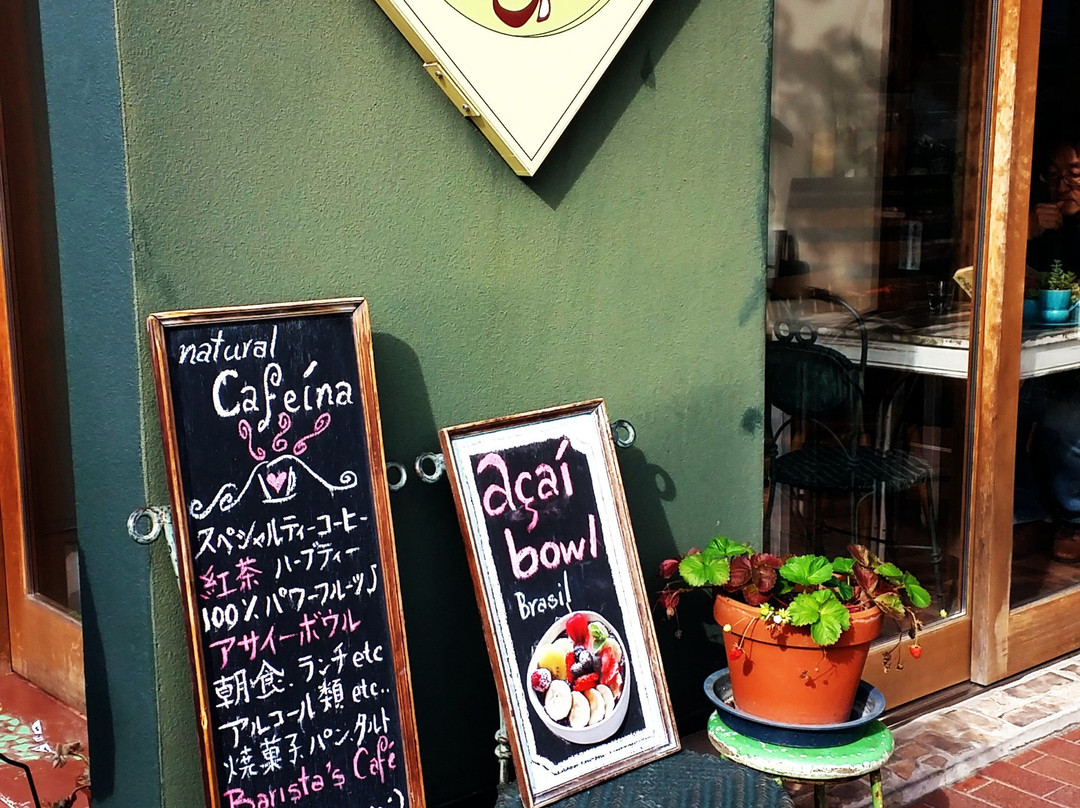 natural
Cafeína
スペシャルティーコーヒー
紅茶 ハーブティー
100% パワーフルーツJ
アサイーボウル
朝食. ランチ etc
アルコール類 etc..
焼菓子 パン. タルト
Barista's Café
açaí
bowl
Brasil